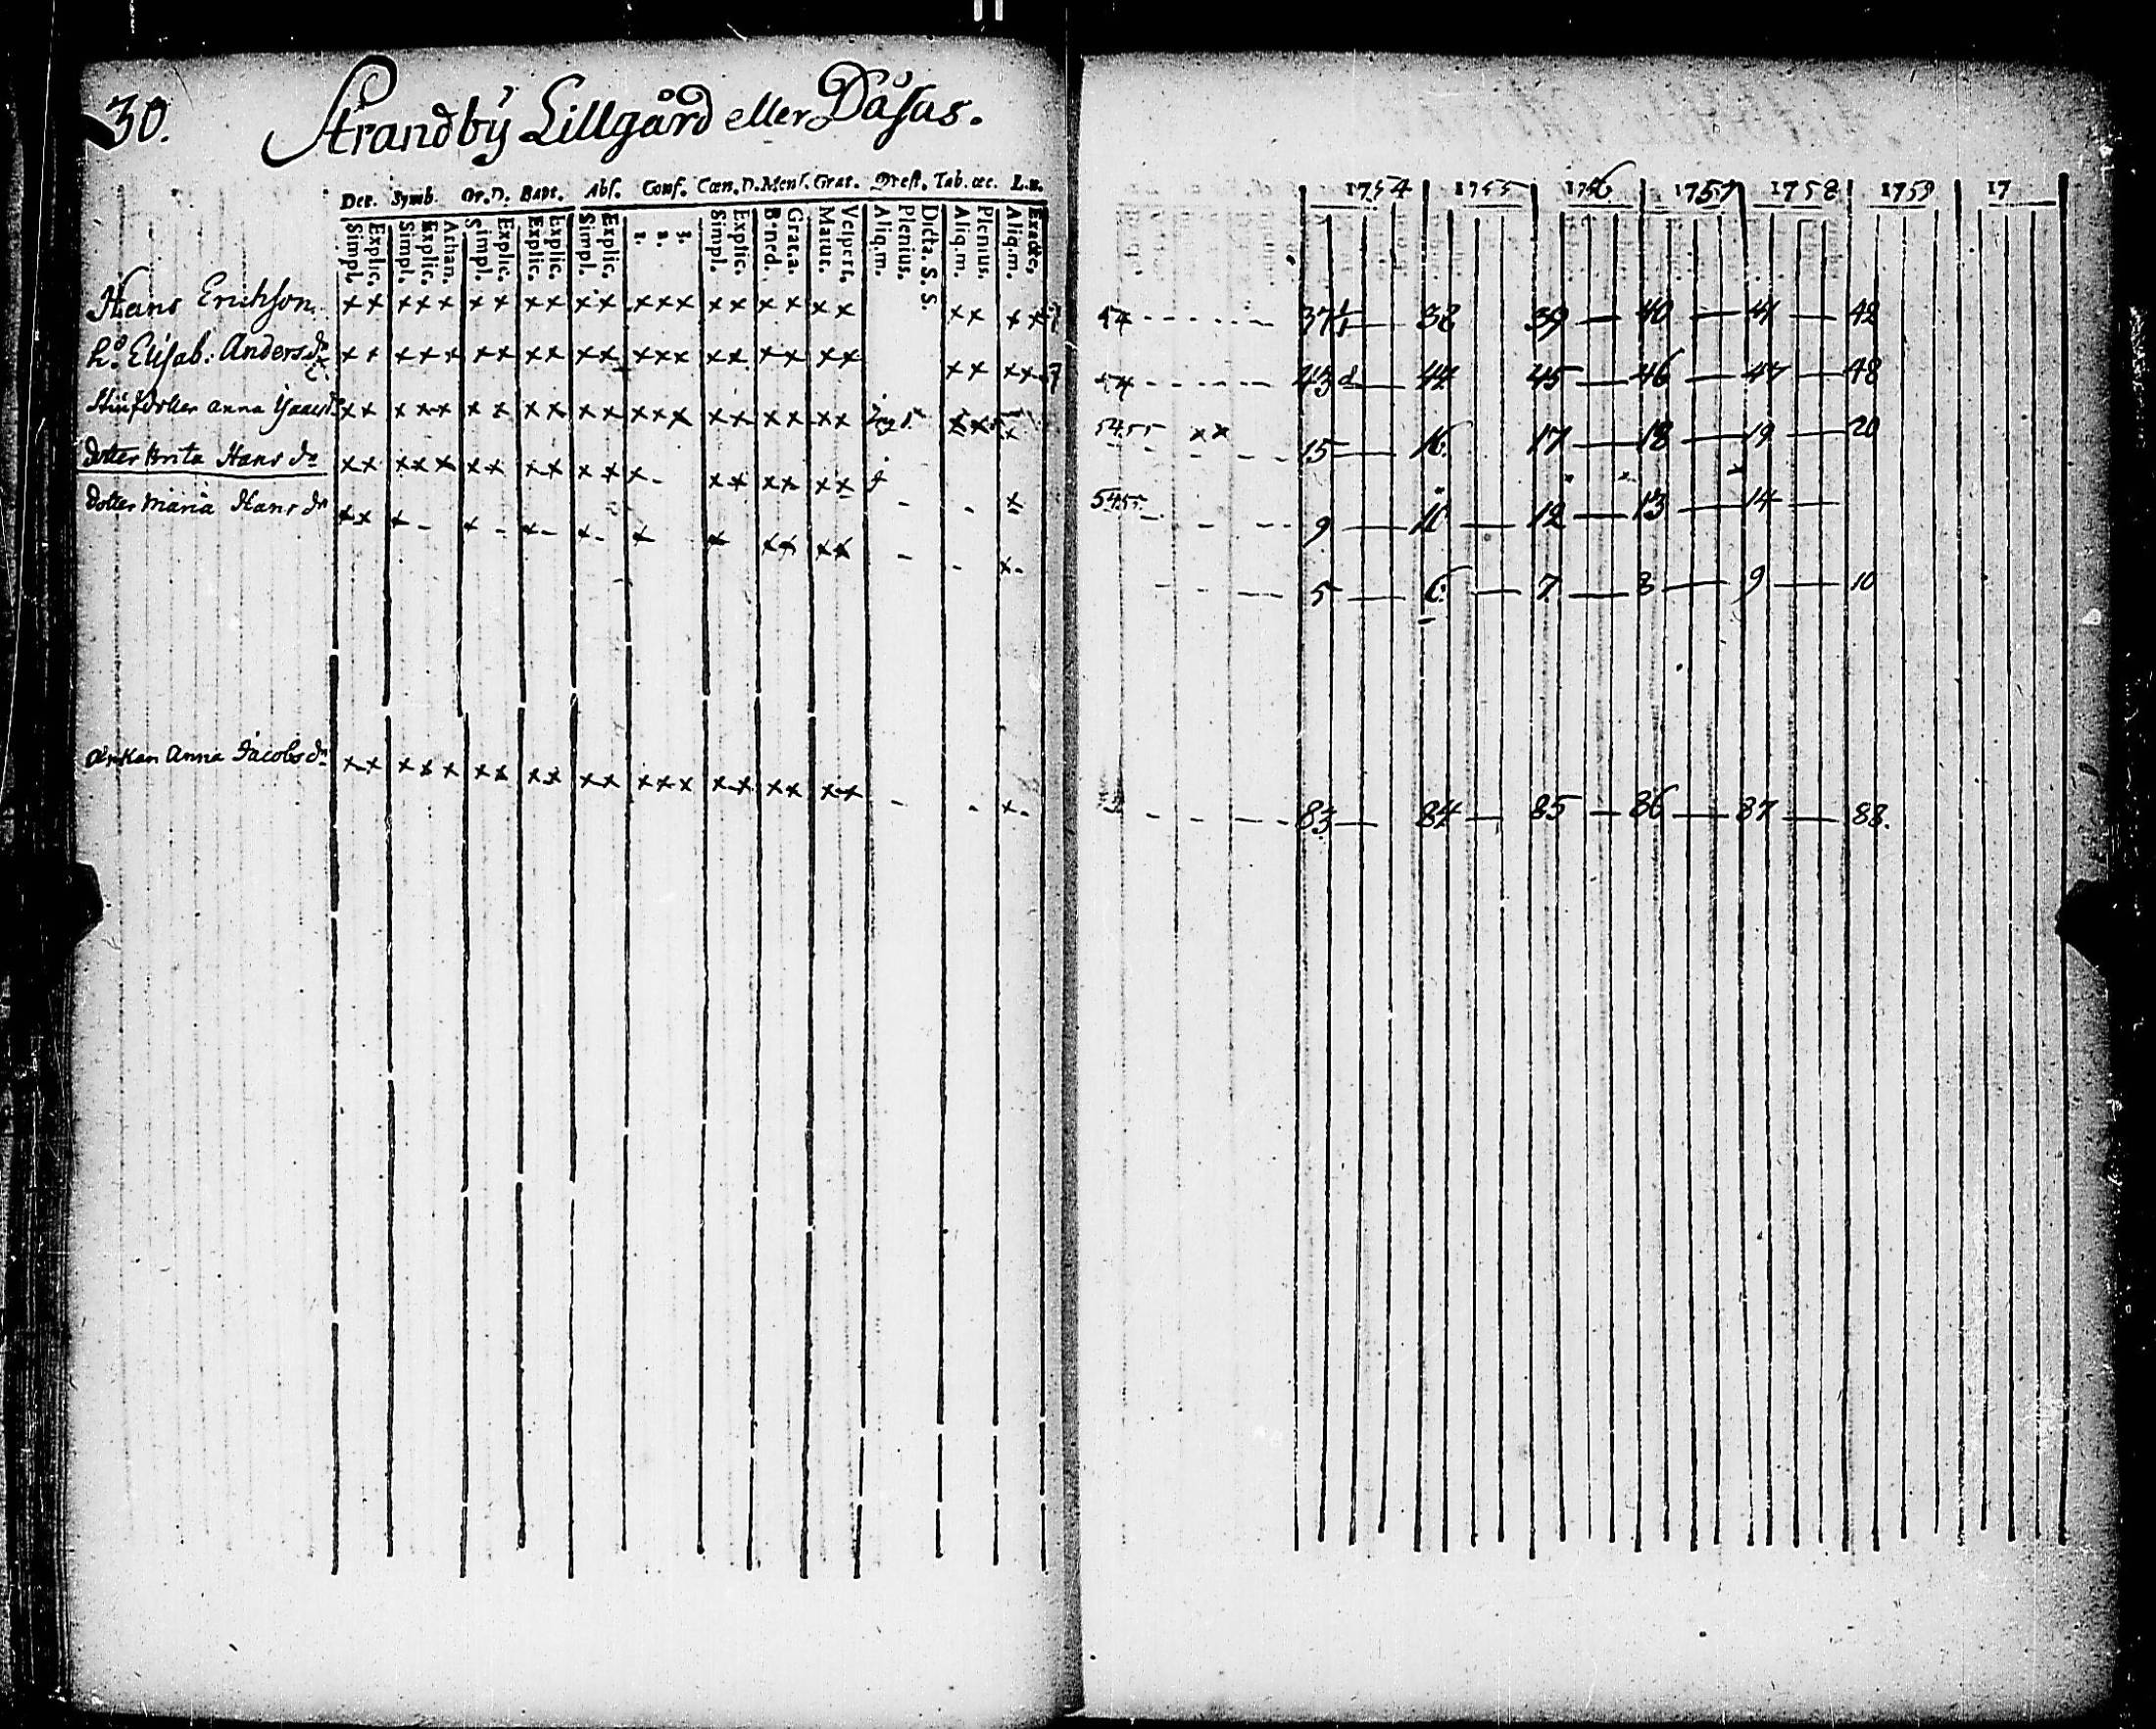 30. Strandbÿ Lillgård eller Dåsas.
Dec. Symb. Or.D. Bapt. Abs. Conf. Cœn.D. Mens. Grat. Præst. Tab. œc. L.n.
Simpl. Explic. Simpl. Explic. Athan. Simpl. Explic. Explic. Explic. Simpl. Explic. 1. 2. 3. Simpl. Explic. Bened. Grat.a. Matut. Vespert. Aliq.m. Plenius. Dicta. S. S. Aliq.m. Plenius. Aliq.m. Exacte.
1754 1755 1756 1757 1758 1759 17
Hans Erichson x x x x x x x x x x x x x x x x x x x x x x x x 37 — 38 39 — 40 — 41 — 42
h:o Elisab: Anders dr x x x x x x x x x x x x x x x x x x x x x x x x 43 — 44 45 — 46 — 47 — 48
Stiufdotter Anna x x x x x x x x x x x x x x x x x x x x x x x 5455 x x 15 — 16 17 — 18 — 19 — 20
dotter Brita Hans dr x x x x x x x x x x x x - x x x x x x - - x 5455 - - - 9 — 11 — 12 — 13 — 14 —
dotter Maria Hans dr x x x - x - x - x - x x x x x x - - x - - - - 5 — 6 — 7 — 8 — 9 — 10
änkan Anna Jacobs dr x x x x x x x x x x x x x x x x x x x x - - x - - - - 83 — 84 — 85 — 86 — 87 — 88.